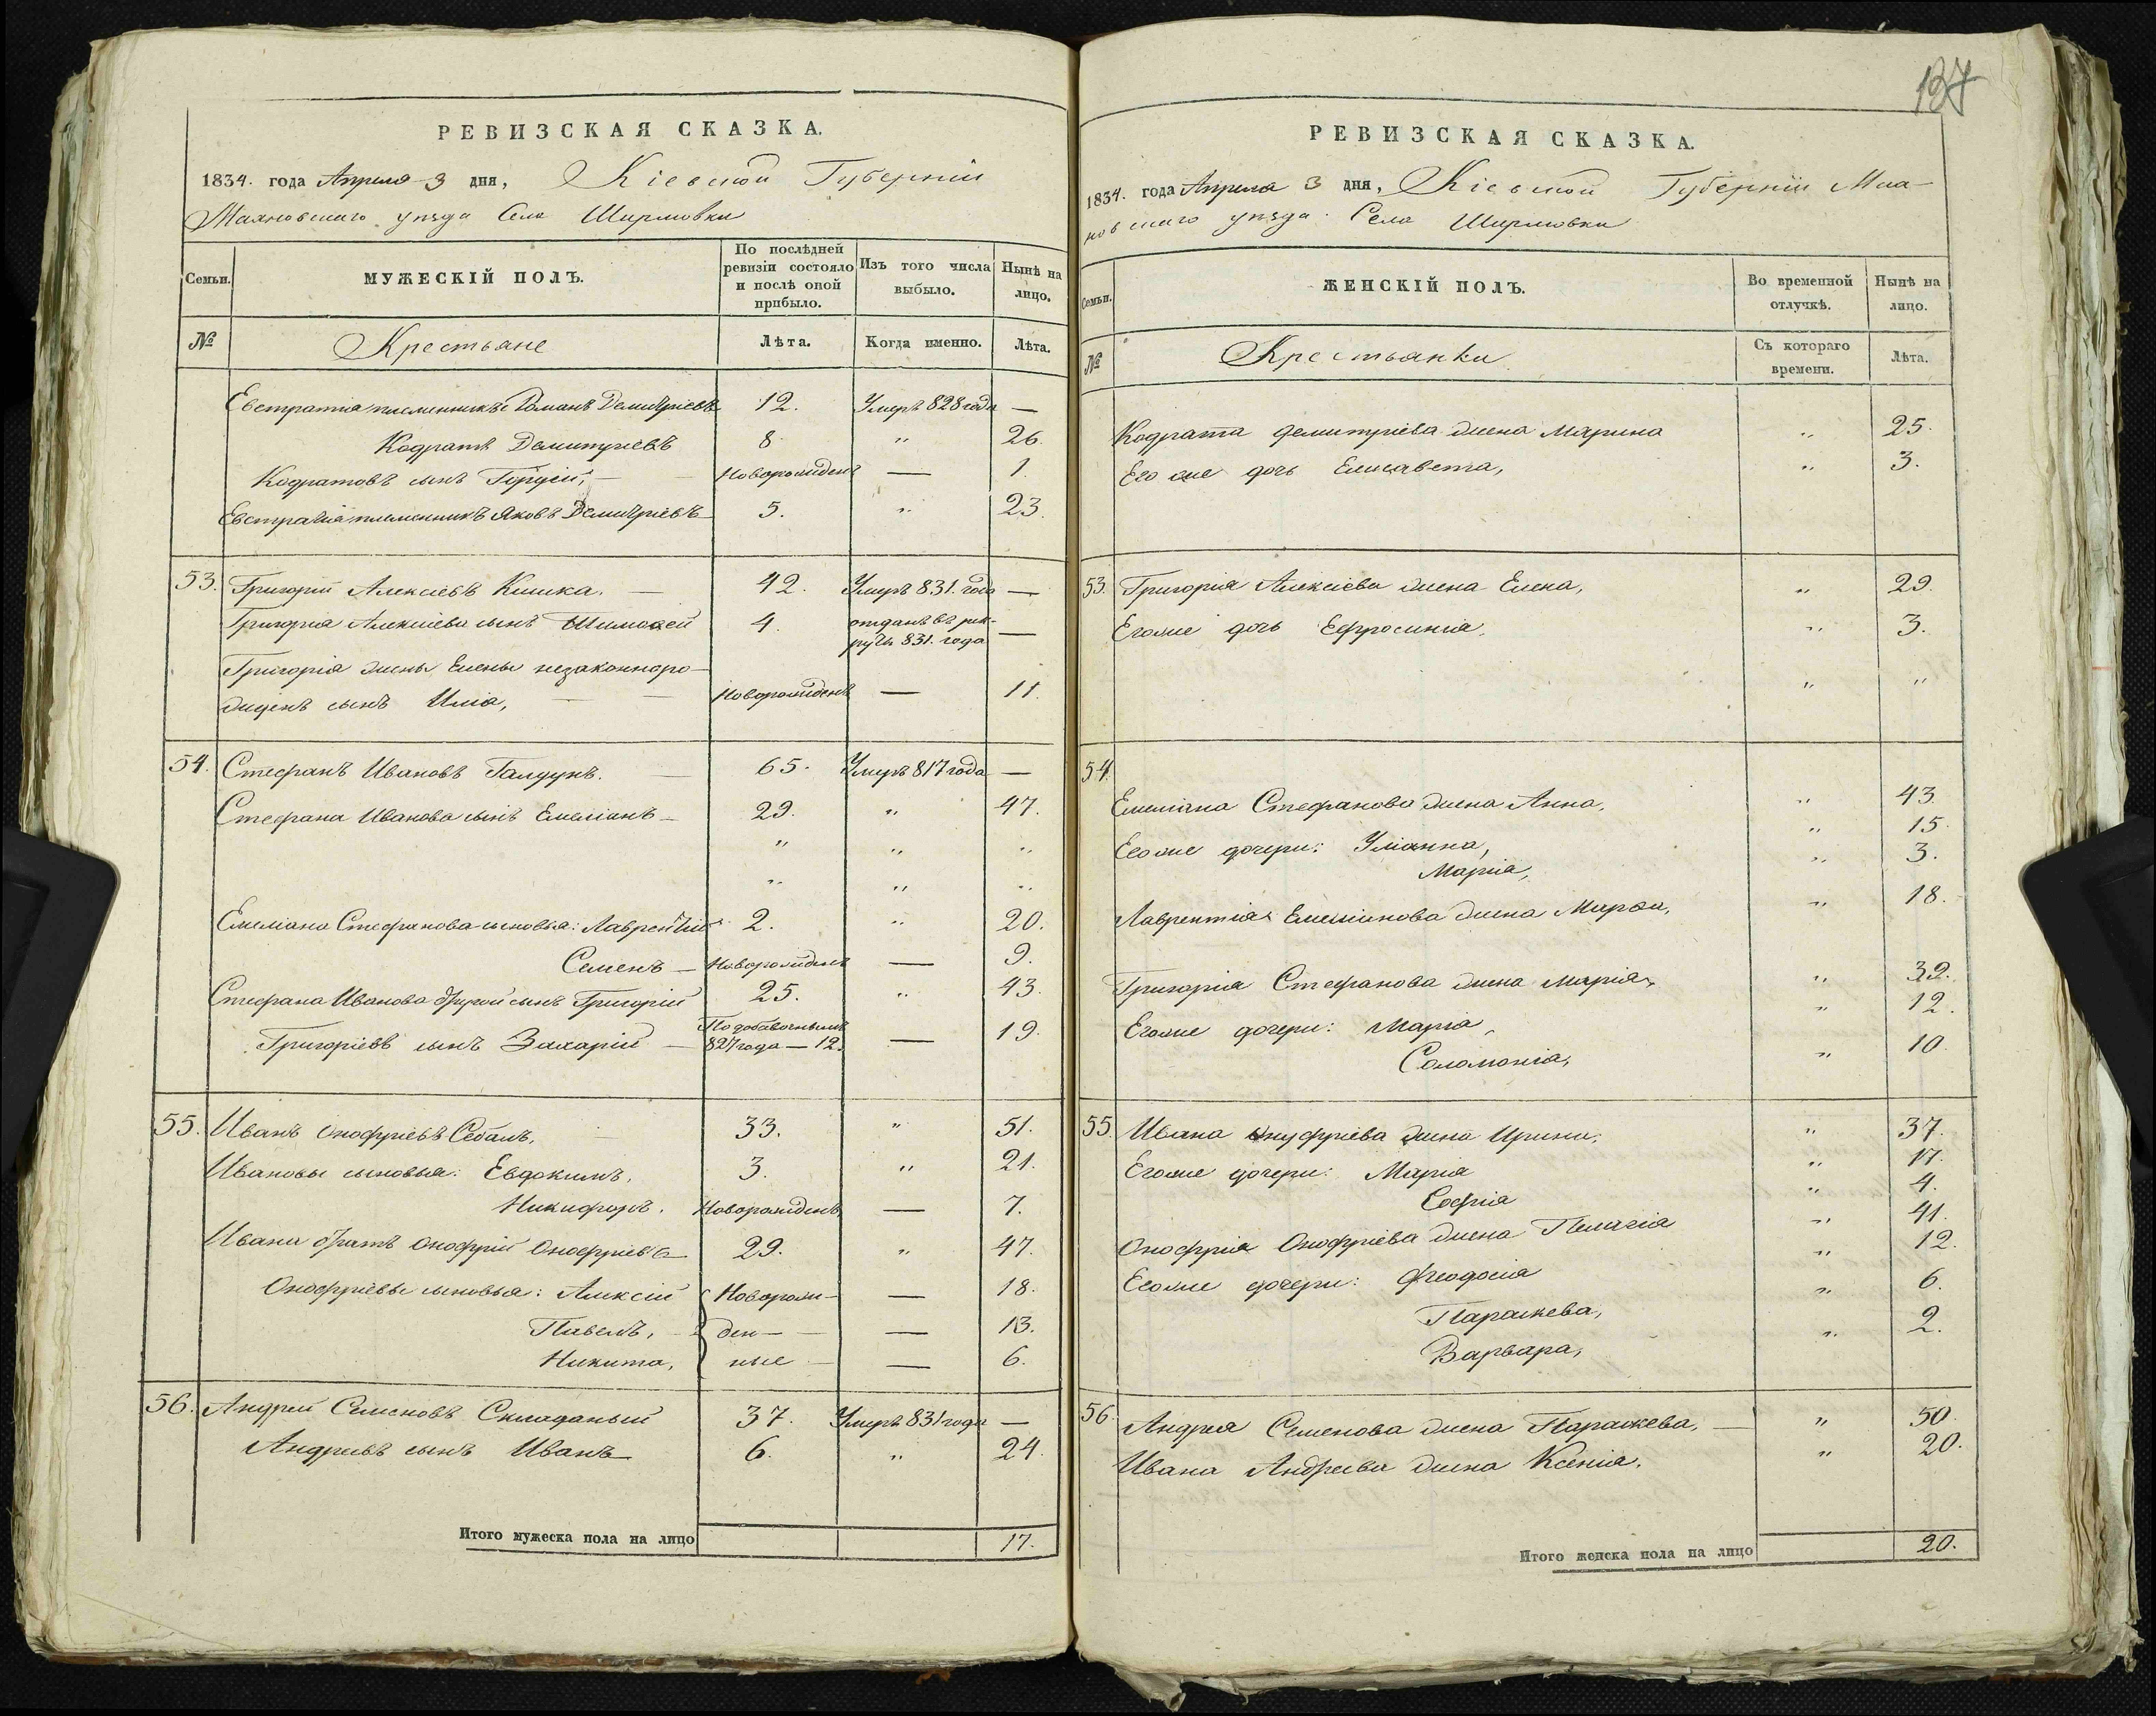 РЕВИЗСКАЯ СКАЗКА.
1834. года Апреля 3 дня, Кіевской Губерніи
Махновскаго уѣзда Села Ширмовки
Семьи.
МУЖЕСКІЙ ПОЛЪ.
По послѣдней ревизіи состояло и послѣ оной прибыло.
Изъ того числа выбыло.
Нынѣ на лицо.
№
Крестьяне
Лѣта.
Когда именно.
Лѣта.
Евстратія племенникъ Романъ Демитріевъ 12. Умеръ 828 года —
Кодратъ Демитріевъ 8 " 26.
Кодратовъ сынъ Новорожденъ — 1.
Евстратія племенникъ Яковъ Демитріевъ 5. " 23.
53. Григорій Алексіевъ Кишка. — 42. Умеръ 831. года —
Григорія Алексіева сынъ Тимоѳей 4. отданъ въ рек-
руты 831. года —
Григорія жены Елены незаконноро-
жденъ сынъ Илія, — Новорожденъ — 11.
54. Стефанъ Ивановъ Галдунъ. — 65. Умеръ 817 года —
Стефана Иванова сынъ Емеліанъ — 29. " 47.
" " "
" " "
Емеліана Стефанова сыновья: Лаврентій 2. " 20.
Семенъ — Новорожденъ — 9.
Стефана Иванова другой сынъ Григорій 25. " 43.
Григоріевъ сынъ Захарій — По добавочнымъ
827 года — 12. — 19.
55. Иванъ Онофріевъ Себалъ, — 33. " 51.
Ивановы сыновья: Евдокимъ, 3. " 21.
Никифоръ. Новорожденъ — 7.
Ивана братъ Онофрій Онофріевъ 29. " 47.
Онофріевы сыновья: Алексій Новорож- — 18.
Павелъ, — ден- — 13.
Никита, ные — 6.
56. Андрей Семеновъ Складаный 37. Умеръ 831 года —
Андреевъ сынъ Иванъ 6. " 24.
Итого мужеска пола на лицо 17.
137
РЕВИЗСКАЯ СКАЗКА.
1834. года Апреля 3 дня, Кіевской Губерніи Мах-
новскаго уѣзда Села Ширмовки
Семьи.
ЖЕНСКІЙ ПОЛЪ.
Во временной отлучкѣ.
Нынѣ на лицо.
№
Крестьянки
Съ котораго времени.
Лѣта.
Кодрата Демитріева жена Марина " 25.
Его же дочь Елисавета, " 3.
53. Григорія Алексіева жена Елена, " 29.
Егоже дочь Ефросинія, " 3.
" "
54.
Емеліана Стефанова жена Анна, " 43.
Егоже дочери: Уліанна, " 15.
Марія, " 3.
Лаврентія Емеліанова жена Марѳа, " 18.
Григорія Стефанова жена Марія, " 32.
Егоже дочери: Марія, " 12.
Соломонія, " 10.
55. Ивана Онуфріева жена Ирина, " 37.
Егоже дочери: Марія " 17.
Софія " 4.
Онофрія Онофріева жена Пелагія " 41.
Егоже дочери: Феодосія " 12.
Параскева, " 6.
Варвара, " 2.
56. Андрея Семенова жена Параскева, — " 50.
Ивана Андреева жена Ксенія. " 20.
Итого женска пола на лицо 20.